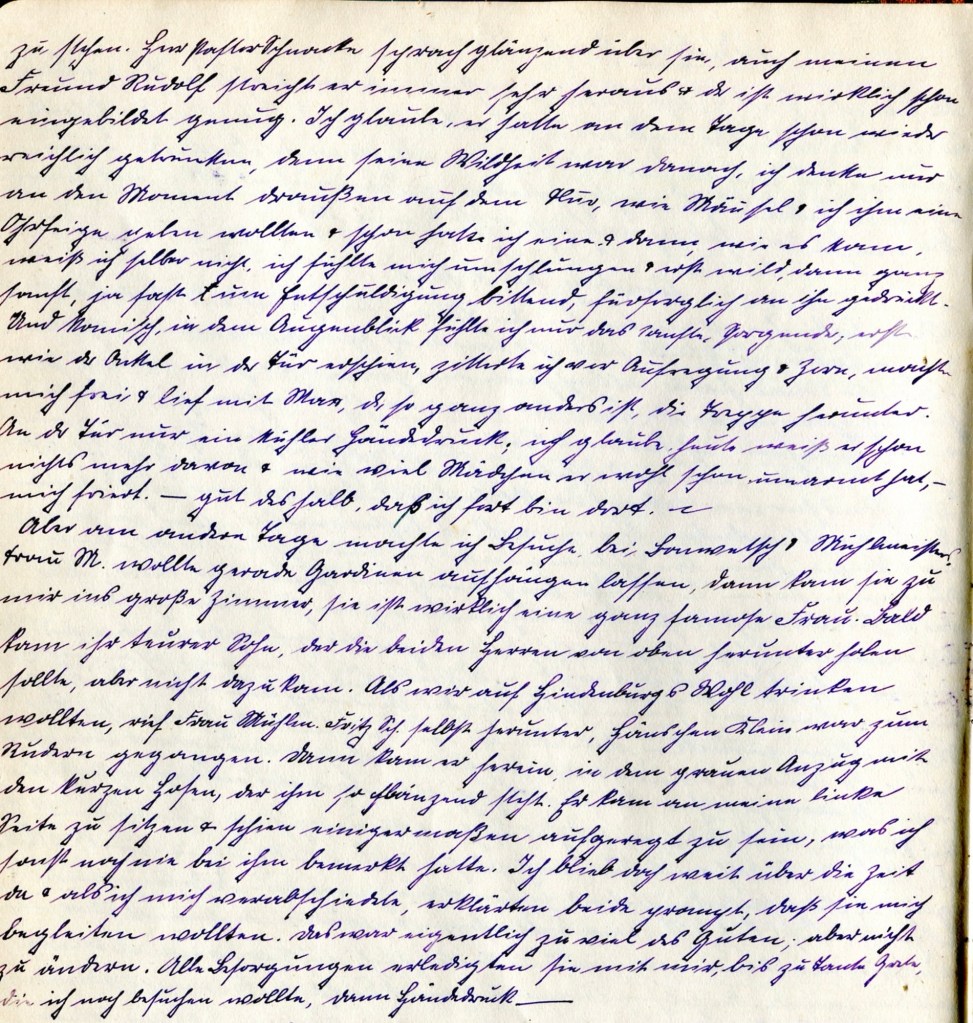 zu stehen. Herr Pastor Schnacke sprach glänzend über sie, auch meinen
Freund Rudolf streicht er immer sehr heraus & der ist wirklich schon
eingebildet genug. Ich glaube, er hatte an dem Tage schon wieder
reichlich getrunken, denn seine Wildheit war danach, ich denke nur
an den Moment draußen auf dem Flur, wie Mäusel & ich ihm eine
Ohrfeige geben wollten & schon hatte ich eine & dann, wie es kam,
weiß ich selber nicht, ich fühlte mich umschlungen & erst wild, dann ganz
sanft, ja fast um Entschuldigung bittend, fürsorglich an ihn gedrückt.
Und komisch, in dem Augenblick fühlte ich nur das sanfte, Sorgende, erst
wie der Onkel in der Tür erschien, zitterte ich vor Aufregung & Zorn, machte
mich frei & lief mit Max, der so ganz anders ist, die Treppe herunter.
An der Tür nur ein kühler Händedruck, ich glaube heute weiß er schon
nichts mehr davon & wie viel Mädchen er wohl schon umarmt hat, –
mich friert. – gut deshalb, daß ich fort bin dort. –
Aber am andern Tage machte ich Besuche bei Bonwetsch & Mühlmeisters,
Frau M. wollte gerade Gardinen aufhängen lassen, dann kam sie zu
mir ins große Zimmer, sie ist wirklich eine ganz famose Frau. Bald
kam ihr teurer Sohn, der die beiden Herren von oben herunter holen
sollte, aber nicht dazu kam. Als wir auf Hindenburgs Wohl trinken
wollten, rief Frau Mühlm. Fritz Sch. selbst herunter, Hänschen Klein war zum
Rudern gegangen. Dann kam er herein, in dem grauen Anzug mit
den kurzen Hosen, der ihm so glänzend steht. Er kam an meine linke
Seite zu sitzen & schien einigermaßen aufgeregt zu sein, was ich
sonst noch nie bei ihm bemerkt hatte. Ich blieb doch weit über die Zeit
da & als ich mich verabschiedete, erklärten beide prompt, daß sie mich
begleiten wollten. Das war eigentlich zu viel des Guten, aber nicht
zu ändern. Alle Besorgungen erledigten sie mit mir, bis zu Tante Grete,
die ich noch besuchen wollte, dann Händedruck —